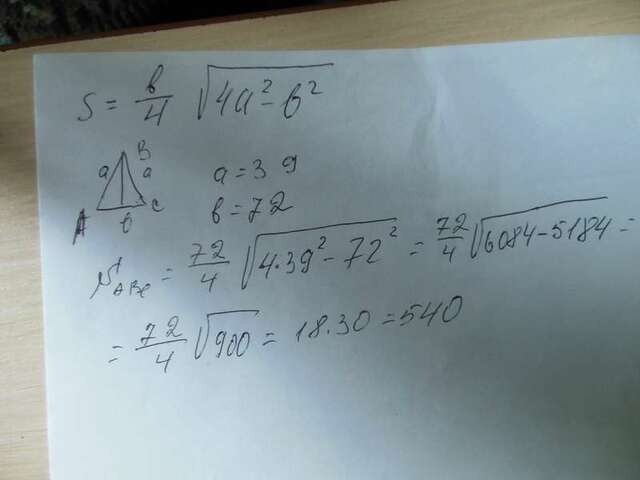 S = в/4 √4a² - в²
B
a a
A в C
a = 39
в = 72
S ABC = 72/4 √4·39² - 72² = 72/4 √6084 - 5184 =
= 72/4 √900 = 18·30 = 540